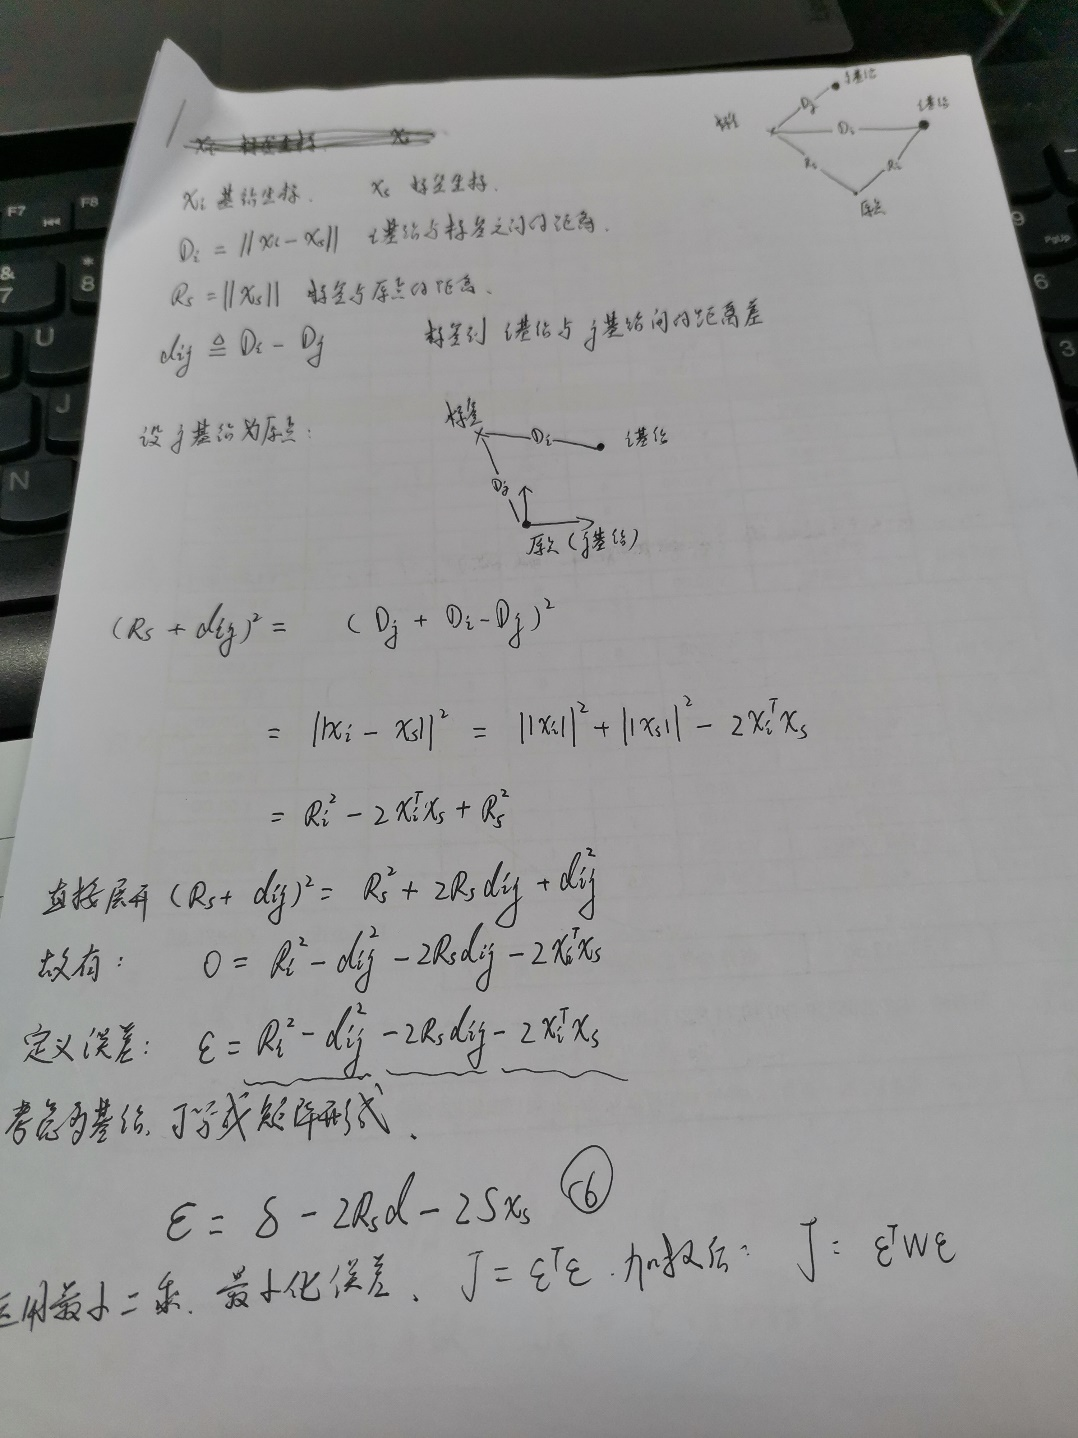 1
标签 Dj j基站
Di i基站
Rs Ri
原点
xi 标签坐标. xs
xi 基站坐标. xs 标签坐标.
Di = ||xi - xs|| i基站与标签之间的距离.
Rs = ||xs|| 标签与原点的距离.
dij ≜ Di - Dj 标签到 i基站与 j基站间的距离差
设 j基站为原点:
标签 Di i基站
Dj
原点(j基站)
(Rs + dij)² = (Dj + Di - Dj)²
= ||xi - xs||² = ||xi||² + ||xs||² - 2xiᵀxs
= Ri² - 2xiᵀxs + Rs²
直接展开 (Rs + dij)² = Rs² + 2Rsdij + dij²
故有: 0 = Ri² - dij² - 2Rsdij - 2xiᵀxs
定义误差: ε = Ri² - dij² - 2Rsdij - 2xiᵀxs
考虑多基站, 可写成矩阵形式.
ε = δ - 2Rsd - 2Sxs ⑥
运用最小二乘. 最小化误差. J = εᵀε . 加权后: J = εᵀWε
F7 F8
& 7 * 8
U
J
N
9 PgUp
6
3